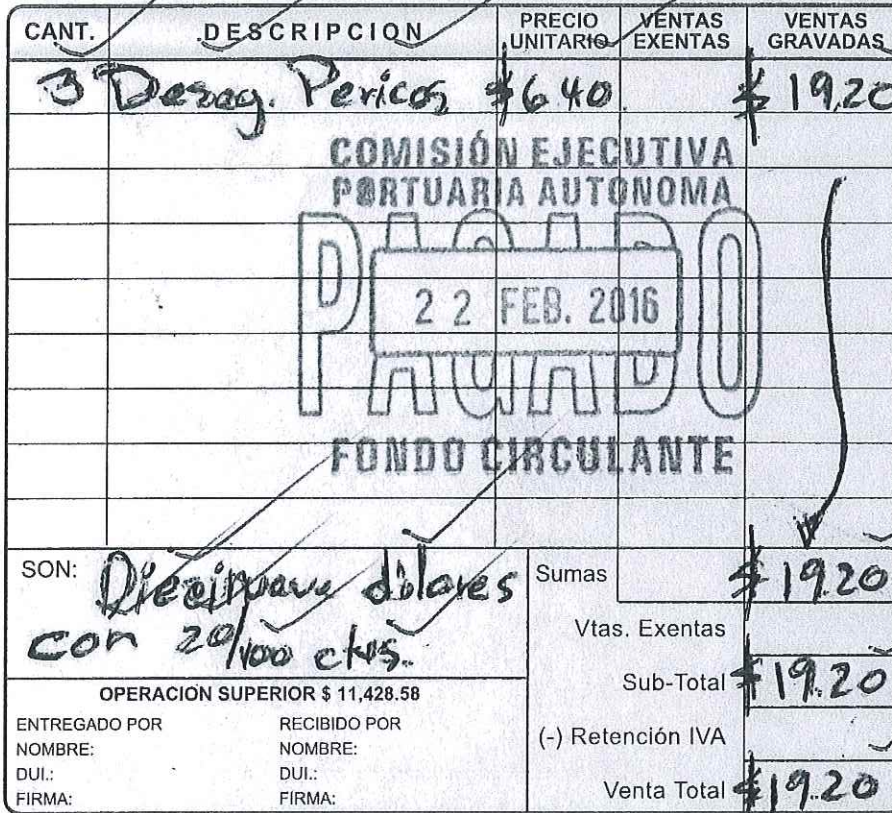 CANT. DESCRIPCION PRECIO UNITARIO VENTAS EXENTAS VENTAS GRAVADAS
3 Desag. Pericos $6.40 $19.20
COMISIÓN EJECUTIVA
PORTUARIA AUTONOMA
PAGADO
22 FEB. 2016
FONDO CIRCULANTE
SON: Diecinueve dólares
con 20/100 ctvs.
Sumas $19.20
Vtas. Exentas
Sub-Total $19.20
(-) Retención IVA
Venta Total $19.20
OPERACION SUPERIOR $ 11,428.58
ENTREGADO POR RECIBIDO POR
NOMBRE: NOMBRE:
DUI.: DUI.:
FIRMA: FIRMA: